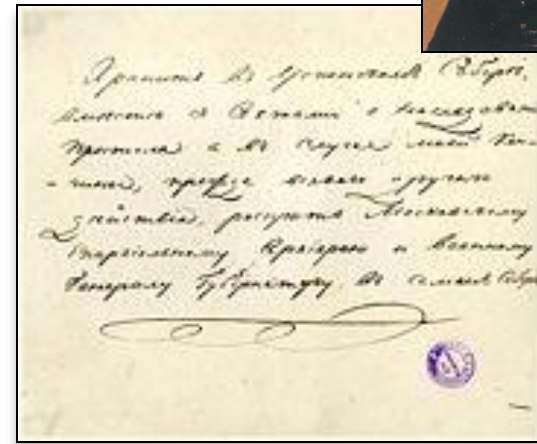 Хранить въ Успенскомъ Соборѣ,
вместе съ Актами о наследован
Престола а въ случае моей кон-
-чины, прежде всякого другого
действия, раскрыть Московскому
Епархіальному Архіерею и Военному
Генералу Губернатору, въ самомъ Собор